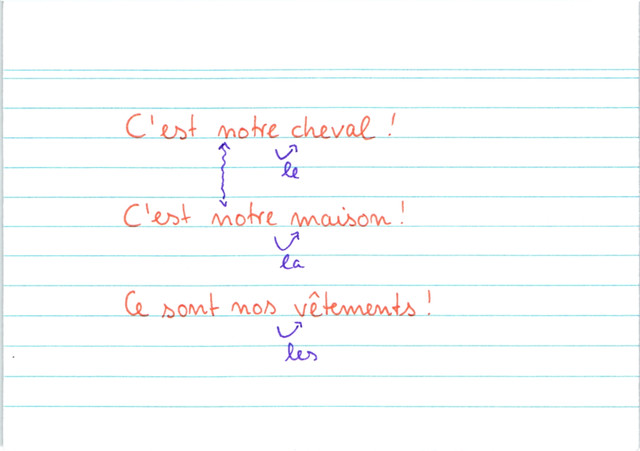 C'est notre cheval !
le
C'est notre maison !
la
Ce sont nos vêtements !
les